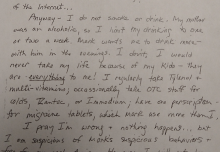 of the Internet...
Anyway - I do not smoke or drink. My mother
was an alcoholic, so I limit my drinking to one
or two a week. Mark wants me to drink more -
with him in the evenings. I don't. I would
never take my life because of my kids - they
are everything to me! I regularly take Tylenol +
multi-vitamins; occassionally take OTC stuff for
colds, Zantac, or Immodium; have one prescription
for migraine tablets, which mark use more than I.
I pray I'm wrong + nothing happens... but
I am suspicious of Marks suspicious behaviors +